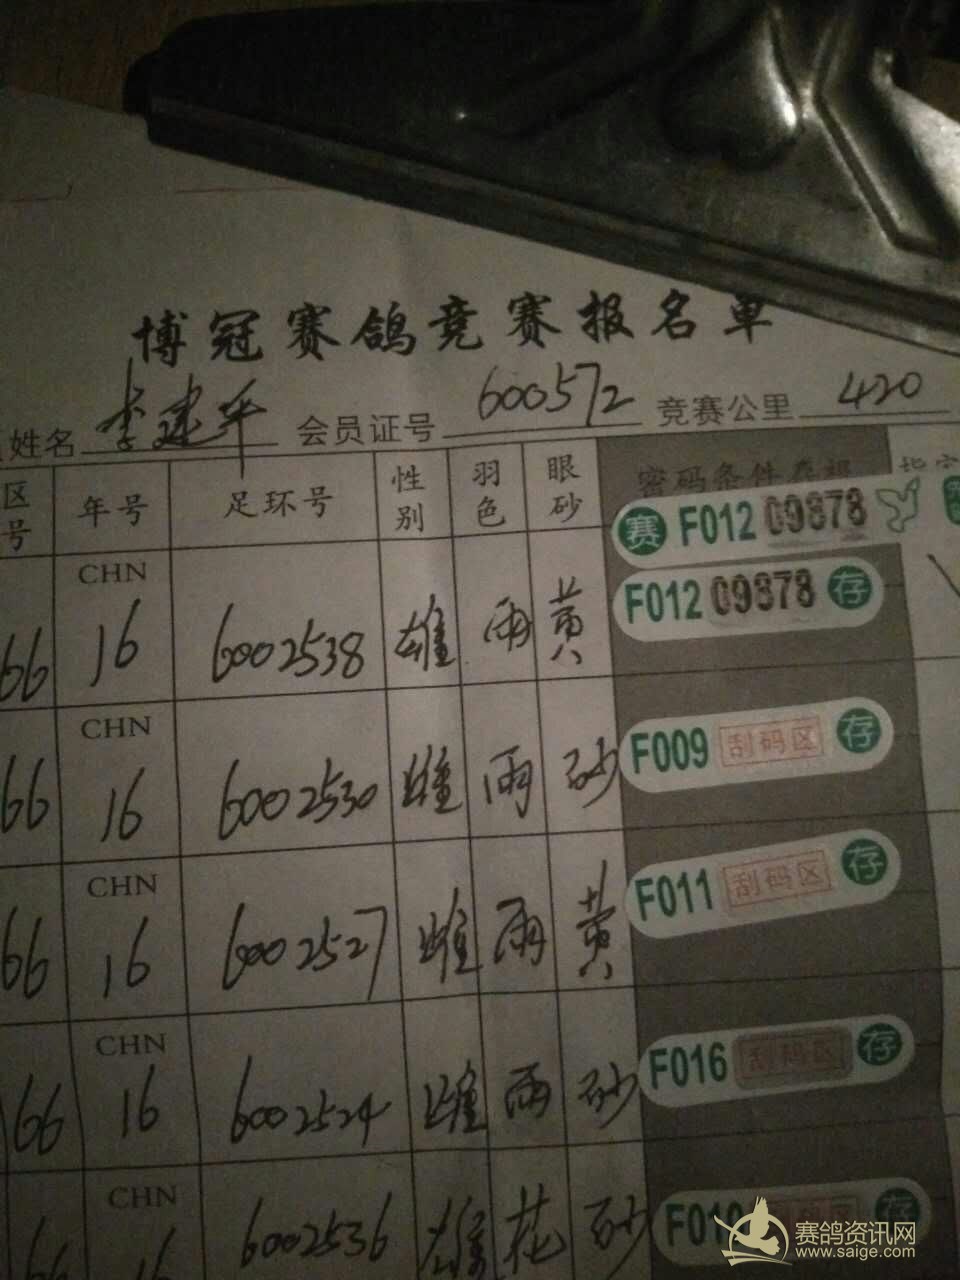 博冠赛鸽竞赛报名单
姓名 李建平 会员证号 600572 竞赛公里 420
区号 年号 足环号 性别 羽色 眼砂 密码条件存根
赛 F012 09878
F012 09878 存
66 CHN 16 6002538 雄 雨 黄
66 CHN 16 6002530 雌 雨 砂 F009 刮码区 存
66 CHN 16 6002527 雌 雨 黄 F011 刮码区 存
66 CHN 16 6002524 雌 雨 砂 F016 刮码区 存
66 CHN 16 6002536 雄 花 砂 存
赛鸽资讯网
www.saige.com